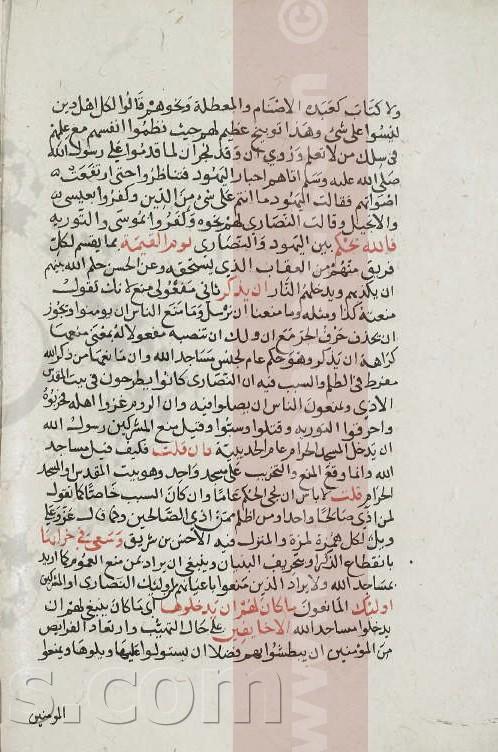 ولا كتاب كعبدة الاصنام والمعطلة ونحوهم قالوا لكل اهل دين
ليسوا على شئ وهذا توبيخ عظيم لهم حيث نظموا انفسهم مع علمهم
فى سلك من لا يعلم وروى ان وفد نجران لما قدموا على رسول الله
صلى الله عليه وسلم اتاهم احبار اليهود فتناظروا حتى ارتفعت
اصواتهم فقالت اليهود ما انتم على شئ من الدين وكفروا بعيسى
والانجيل وقالت النصارى لهم نحوه وكفروا بموسى والتورية
فالله يحكم بين اليهود والنصارى يوم القيمة بما يقسم لكل
فريق منهم من العقاب الذى يستحقه وعن الحسن حكم الله بينهم
ان يكذبهم ويدخلهم النار ان يذكر ثانى مفعولى منع لانك تقول
منعته كذا ومثله وما منعنا ان نرسل وما منع الناس ان يومنوا ويجوز
ان يحذف حرف الجر مع ان ولك ان تنصبه مفعولا له بمعنى منعها
كراهة ان يذكر وهو حكم عام لجنس مساجد الله وان مانعها من ذكر الله
مفرط فى الظلم والسبب فيه ان النصارى كانوا يطرحون فى بيت المقدس
الاذى ويمنعون الناس ان يصلوا فيه وان الروم غزوا اهله فخربوه
واحرقوا التورية وقتلوا وسبوا وقيل منع المشركين رسول الله
ان يدخل المسجد الحرام عام الحديبية فان قلت فكيف قيل مساجد
الله وانما وقع المنع والتخريب على مسجد واحد وهو بيت المقدس والمسجد
الحرام قلت لا باس ان يجى الحكم عاما وان كان السبب خاصا كما تقول
لمن اذى صالحا واحدا ومن اظلم ممن اذى الصالحين وكما قال عز وعلا
ويل لكل همزة لمزة والمنزل فيه الاخنس بن شريق وسعى فى خرابها
بانقطاع الذكر او بتخريب البنيان وينبغى ان يراد بمن منع العموم كما اريد
بمساجد الله ولا يراد الذين منعوا باعيانهم من اوليك النصارى او المشركين
اوليك المانعون ما كان لهم ان يدخلوها اى ما كان ينبغى لهم ان
يدخلوا مساجد الله الا خايفين على حال التهيب وارتعاد الفرايص
من المومنين ان يبطشوا بهم فضلا ان يستولوا عليها ويلوها ويمنعوا
المومنين